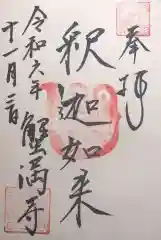 奉拝
釈迦如来
令和六年
十一月二日
蟹満寺